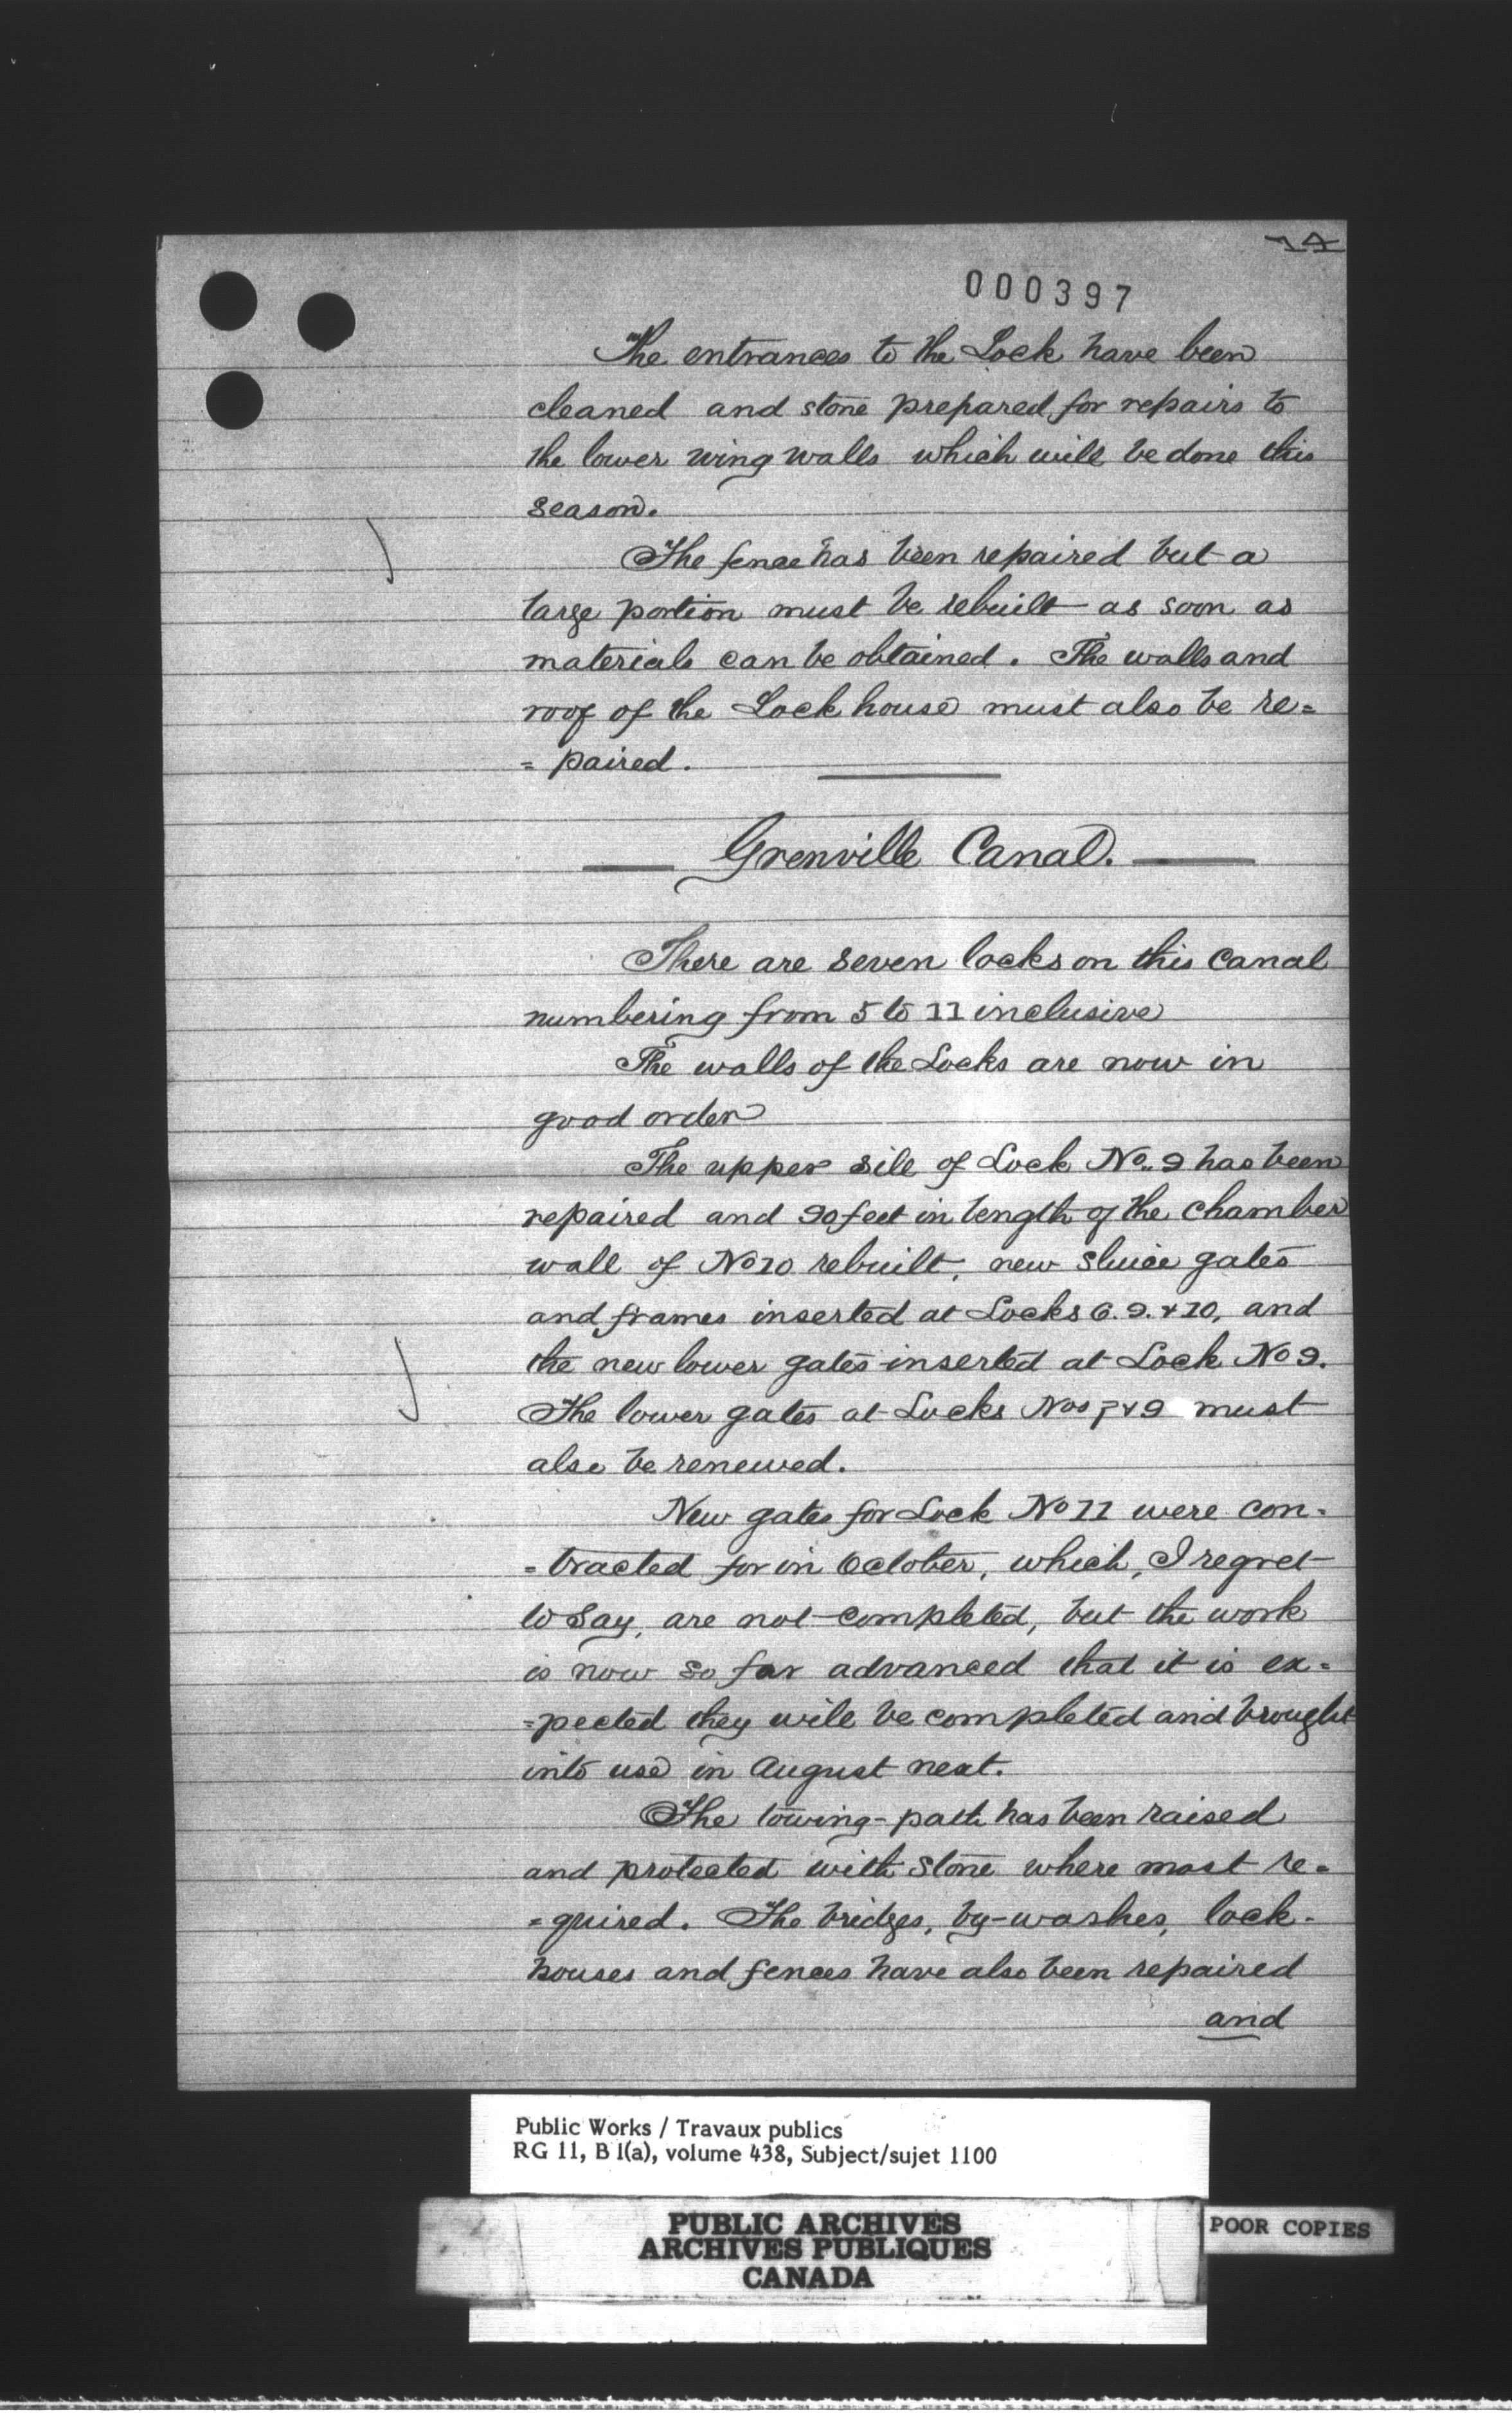 000397
The entrances to the Lock have been
cleaned and stone prepared for repairs to
the lower wing walls which will be done this
season.
The fence has been repaired but a
large portion must be rebuilt as soon as
materials can be obtained. The walls and
roof of the Lock house must also be re=
= paired.
Grenville Canal.
There are seven locks on this Canal
numbering from 5 to 11 inclusive
The walls of the Locks are now in
good order
The upper sill of Lock No. 9 has been
repaired and 90 feet in length of the chamber
wall of No 10 rebuilt, new sluice gates
and frames inserted at Locks 6. 9. & 10, and
the new lower gates inserted at Lock No 9.
The lower gates at Locks Nos & 9 must
also be renewed.
New gates for Lock No 11 were con=
= tracted for in October, which, I regret
to say, are not completed, but the work
is now so far advanced that it is ex=
=pected they will be completed and brought
into use in August next.
The towing-path has been raised
and protected with stone where most re=
=quired. The bridges, by-washes, lock-
houses and fences have also been repaired
and
Public Works / Travaux publics
RG 11, B 1(a), volume 438, Subject/sujet 1100
PUBLIC ARCHIVES
ARCHIVES PUBLIQUES
CANADA
POOR COPIES